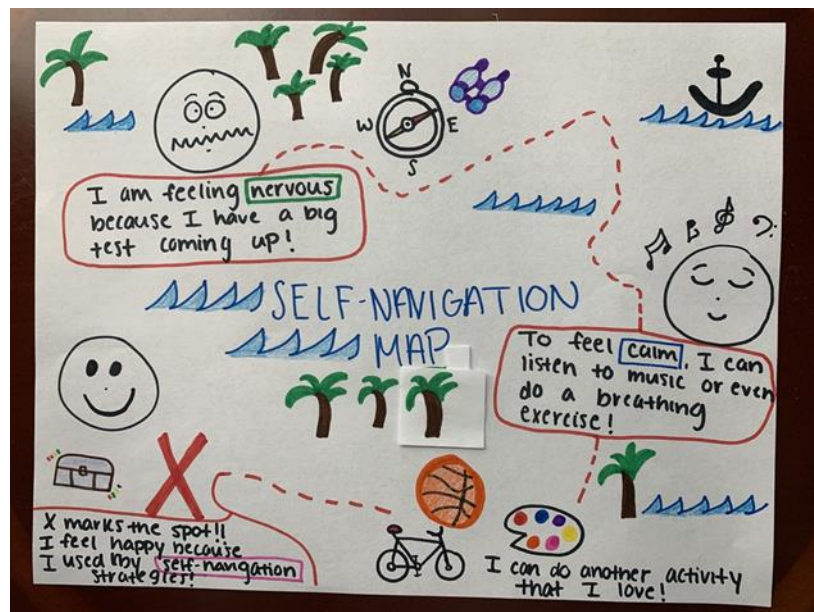 N
W E
S
I am feeling nervous
because I have a big
test coming up!
SELF-NAVIGATION
MAP
To feel calm, I can
listen to music or even
do a breathing
exercise!
X
X marks the spot!!
I feel happy because
I used my self-navigation
strategies!
I can do another activity
that I love!